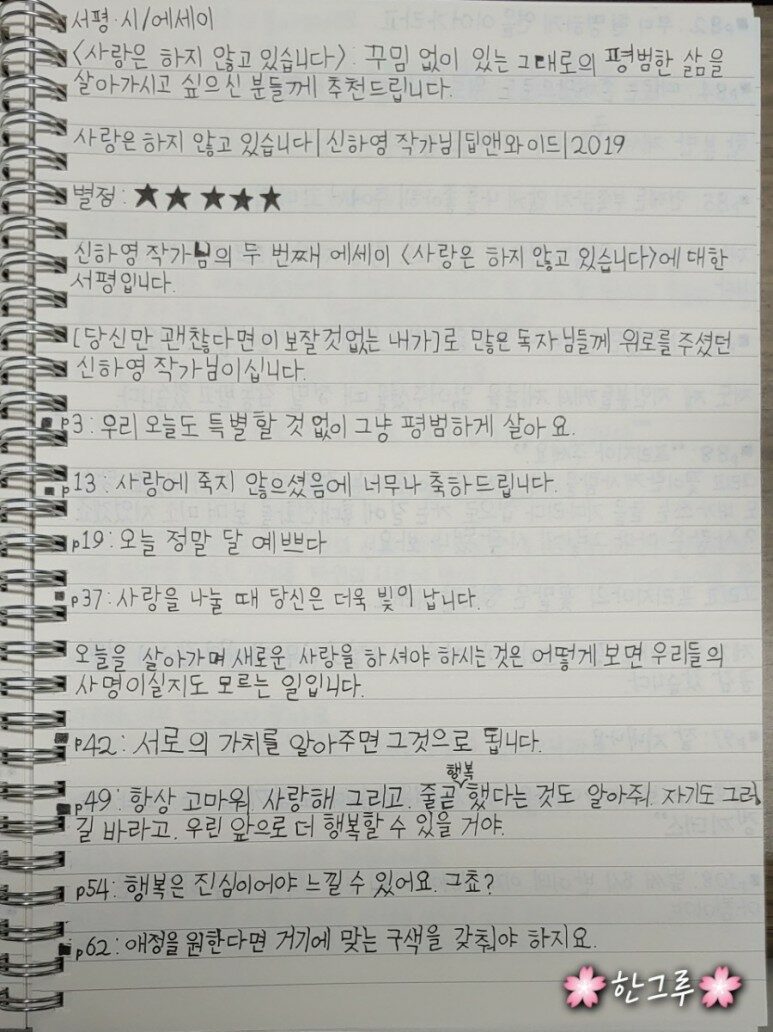 서평·시/에세이
<사랑은 하지 않고 있습니다>: 꾸밈 없이 있는 그대로의 평범한 삶을
살아가시고 싶으신 분들께 추천드립니다.
사랑은 하지 않고 있습니다|신하영 작가님|딥앤와이드|2019
별점: ★★★★★
신하영 작가님의 두 번째 에세이 <사랑은 하지 않고 있습니다>에 대한
서평입니다.
[당신만 괜찮다면 이 보잘것없는 내가]로 많은 독자님들께 위로를 주셨던
신하영 작가님이십니다.
p3: 우리 오늘도 특별할 것 없이 그냥 평범하게 살아요.
p13: 사랑에 죽지 않으셨음에 너무나 축하드립니다.
p19: 오늘 정말 달 예쁘다
p37: 사랑을 나눌 때 당신은 더욱 빛이 납니다.
오늘을 살아가며 새로운 사랑을 하셔야 하시는 것은 어떻게 보면 우리들의
사명이실지도 모르는 일입니다.
p42: 서로의 가치를 알아주면 그것으로 됩니다.
p49: 항상 고마워. 사랑해 그리고. 줄곧 행복했다는 것도 알아줘. 자기도 그러
길 바라고. 우린 앞으로 더 행복할 수 있을 거야.
p54: 행복은 진심이어야 느낄 수 있어요. 그쵸?
p62: 애정을 원한다면 거기에 맞는 구색을 갖춰야 하지요.
🌸한그루🌸